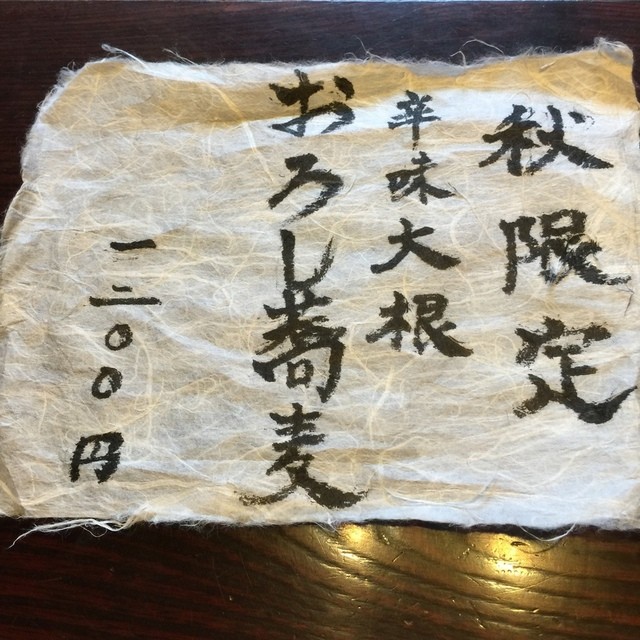 秋限定
辛味大根
おろし蕎麦
一二〇〇円